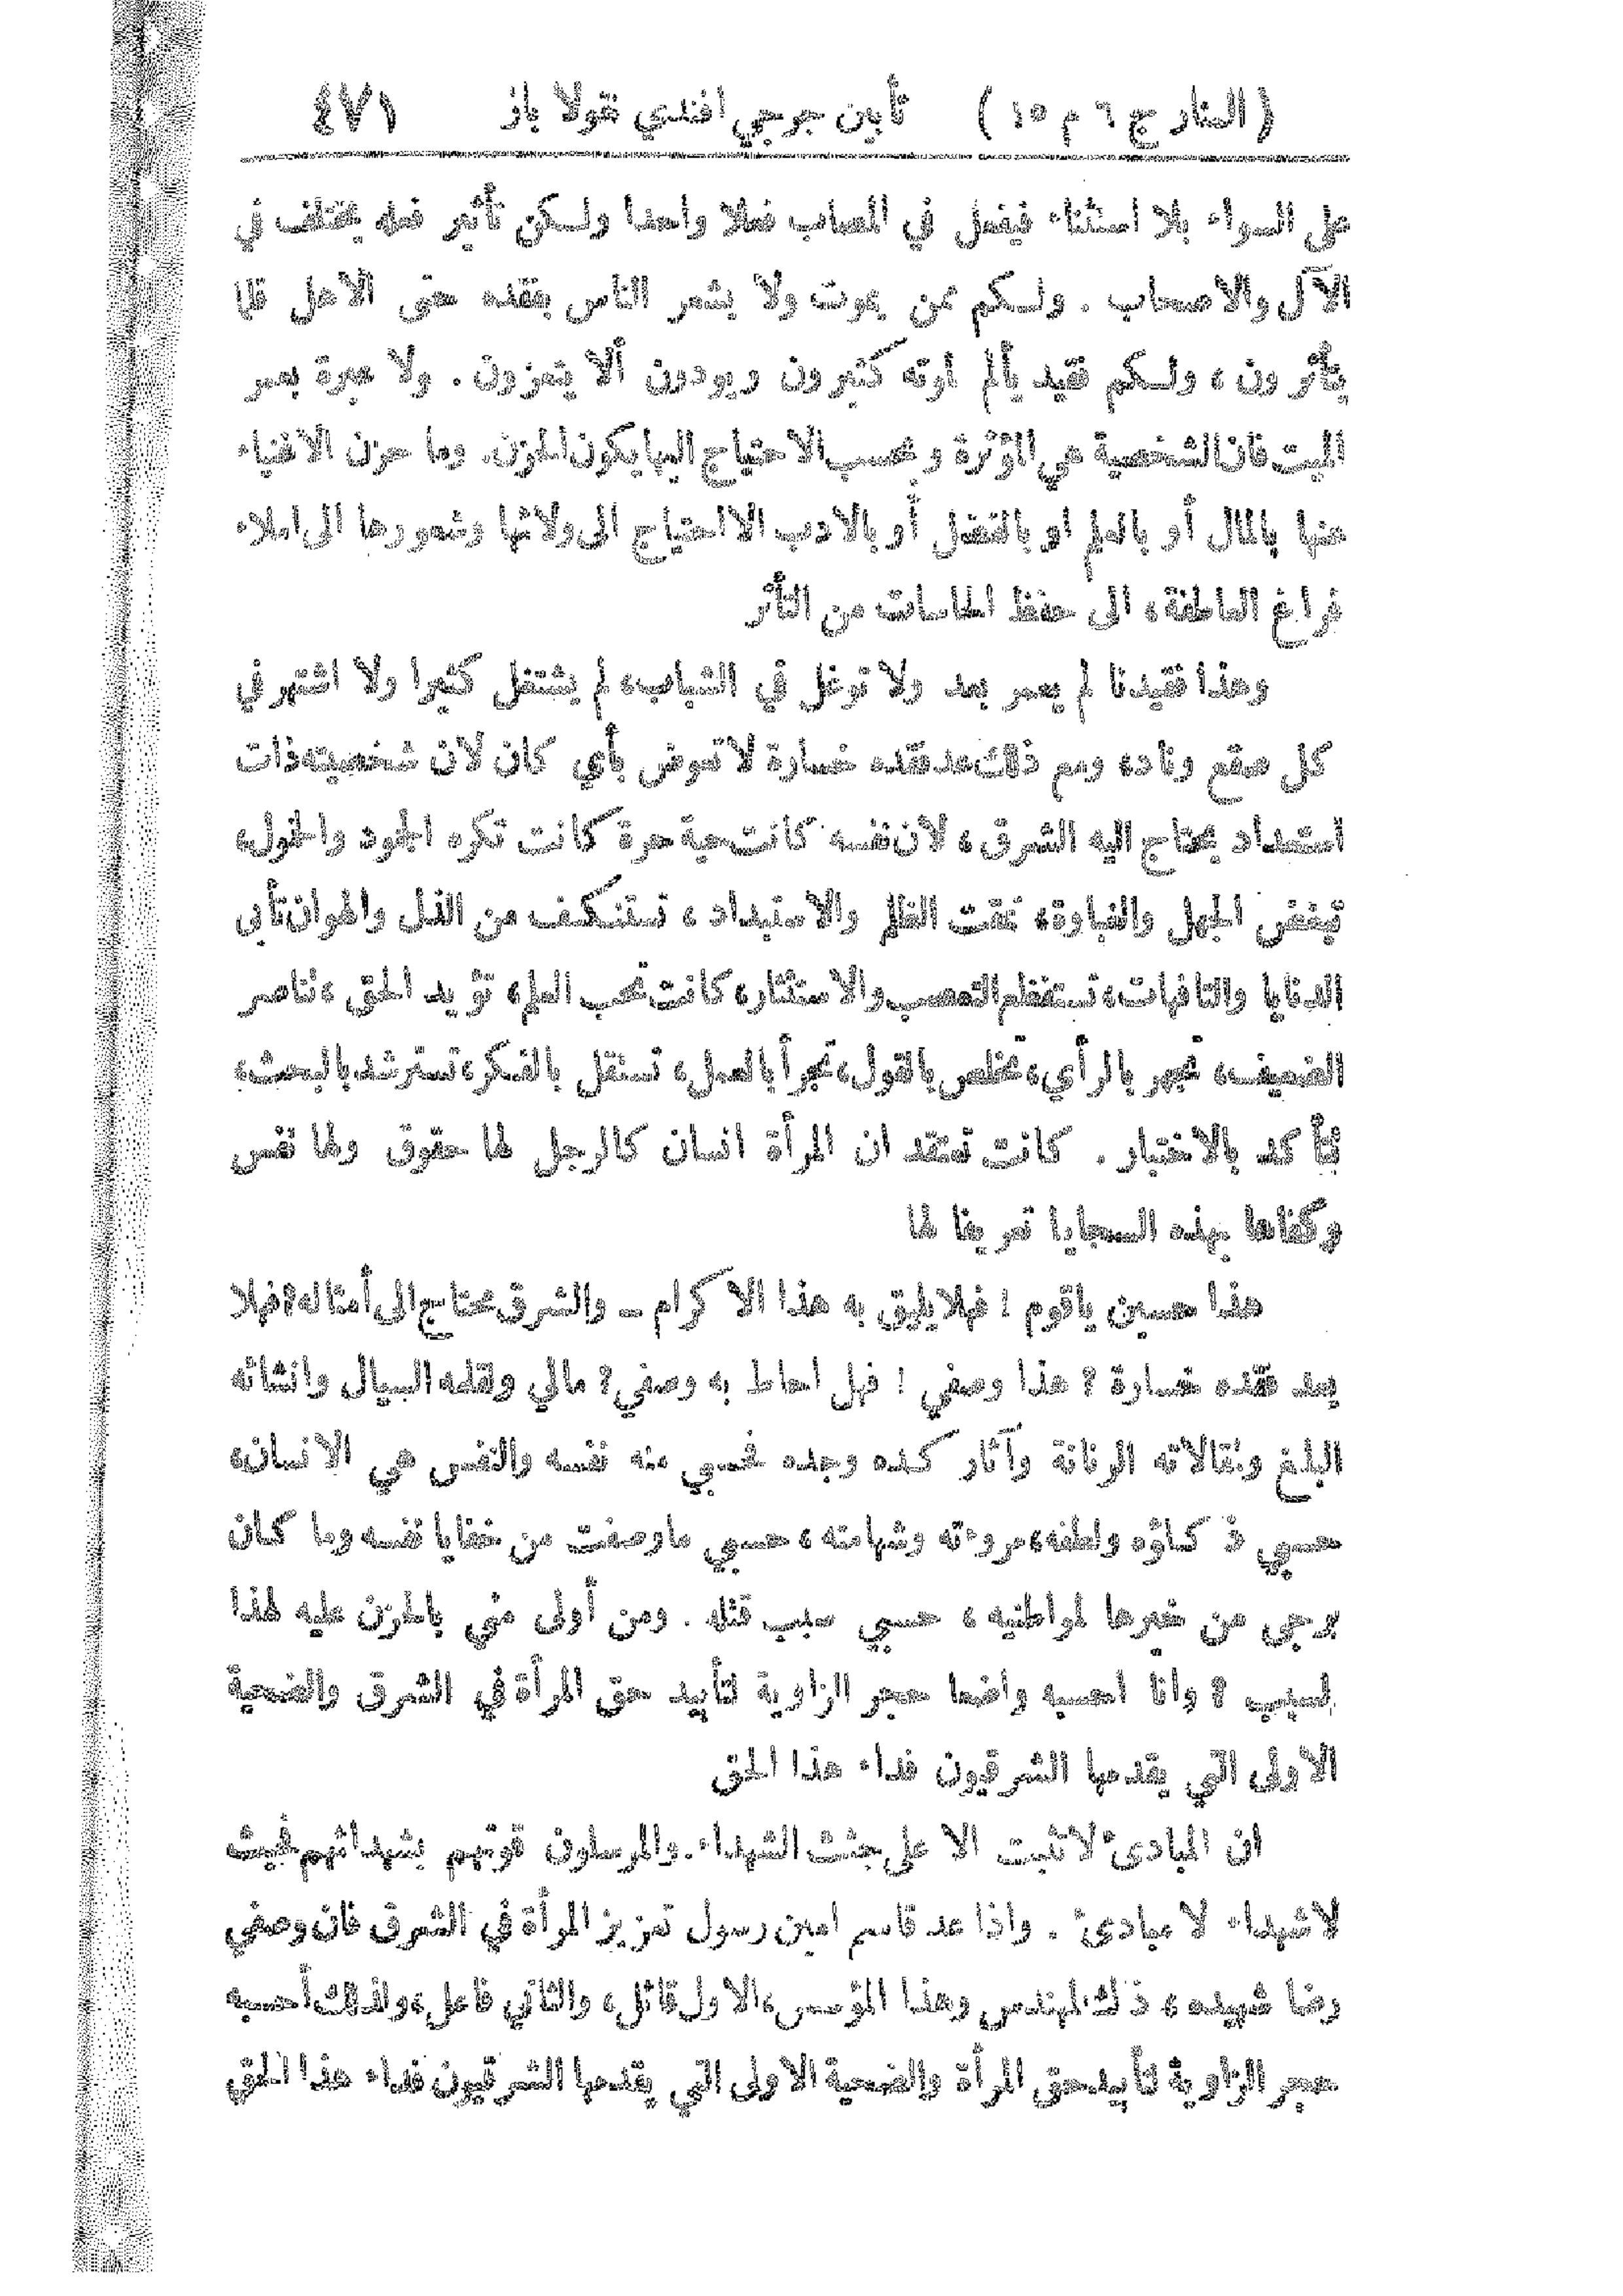 (المنار ج ٦ م ١٥) تأبين جرجي افندي نقولا باز ٤٧١
على السواء بلا استثناء فيفعل في المصاب فعلا واحدا ولـكن تأثير فعله يختلف في
الآل والاصحاب . ولـكم ممن يموت ولا يشعر الناس بفقده حتى الاهل قلما
يتأثرون ، ولـكم فقيد يألم لموته كثيرون ويودون ألا يتعزون . ولا عبرة بعمر
الميت فان الشخصية هي المؤثرة وبحسب الاحتياج اليها يكون الحزن. وما حزن الاغنياء
عنها بالمال أو بالعلم او بالفضل أو بالادب الا احتياج الى ولائها وشعورها الى املاء
فراغ العاطفة ، الى حفظ الحاسات من التأثر
وهذا فقيدنا لم يعمر بعد ولا توغل في الشباب، لم يشتغل كثيرا ولا اشتهر في
كل صقع وناد، ومع ذلك عد فقده خسارة لا تعوض بأي كان لان شخصيته ذات
استعداد يحتاج اليه الشرق ، لان نفسه كانت حية حرة كانت تكره الجمود والخمول،
تبغض الجهل والغباوة، تمقت الظلم والاستبداد ، تستنكف من الذل والهوان تأبى
الدنايا والتافهات، تستفظع التعصب والاستئثار، كانت تحب العلم، تؤيد الحق ، تناصر
الضعيف، تجهر بالرأي، تخلص بالقول، تجرأ بالعمل، تستقل بالفكر، تسترشد بالبحث،
تتأكد بالاختبار . كانت تعتقد ان المرأة انسان كالرجل لها حقوق ولها نفس
وكفاها بهذه السجايا تعريفا لها
هذا حسين ياقوم ! فهلا يليق به هذا الاكرام ــ والشرق محتاج الى أمثاله؟ فهلا
يعد فقده خسارة ? هذا وصفي ! فهل احاط به وصفي? مالي ولقلمه السيال وانشائه
البليغ ومقالاته الرنانة وآثار كده وجده فحسبي منه نفسه والنفس هي الانسان،
حسبي ذكاؤه ولطفه، مروءته وشهامته ، حسبي ماوصفت من خفايا نفسه وما كان
يرجى من خيرها لمواطنيه ، حسبي سبب قتله . ومن أولى مني بالحزن عليه لهذا
السبب ? وانا احسبه واضعا حجر الزاوية لتأييد حق المرأة في الشرق والضحية
الاولى التي يقدمها الشرقيون فداء هذا الحق
ان المبادئ لا تثبت الا على جثث الشهداء. والمرسلون قوتهم بشهدائهم فحيث
لا شهداء لا مبادئ . واذا عد قاسم امين رسول تعزيز المرأة في الشرق فان وصفي
رضا شهيده ، ذلك المهندس وهذا المؤسس، الاول قائل، والثاني فاعل، ولذلك أحسبه
حجر الزاوية لتأييد حق المرأة والضحية الاولى التي يقدمها الشرقيون فداء هذا الحق